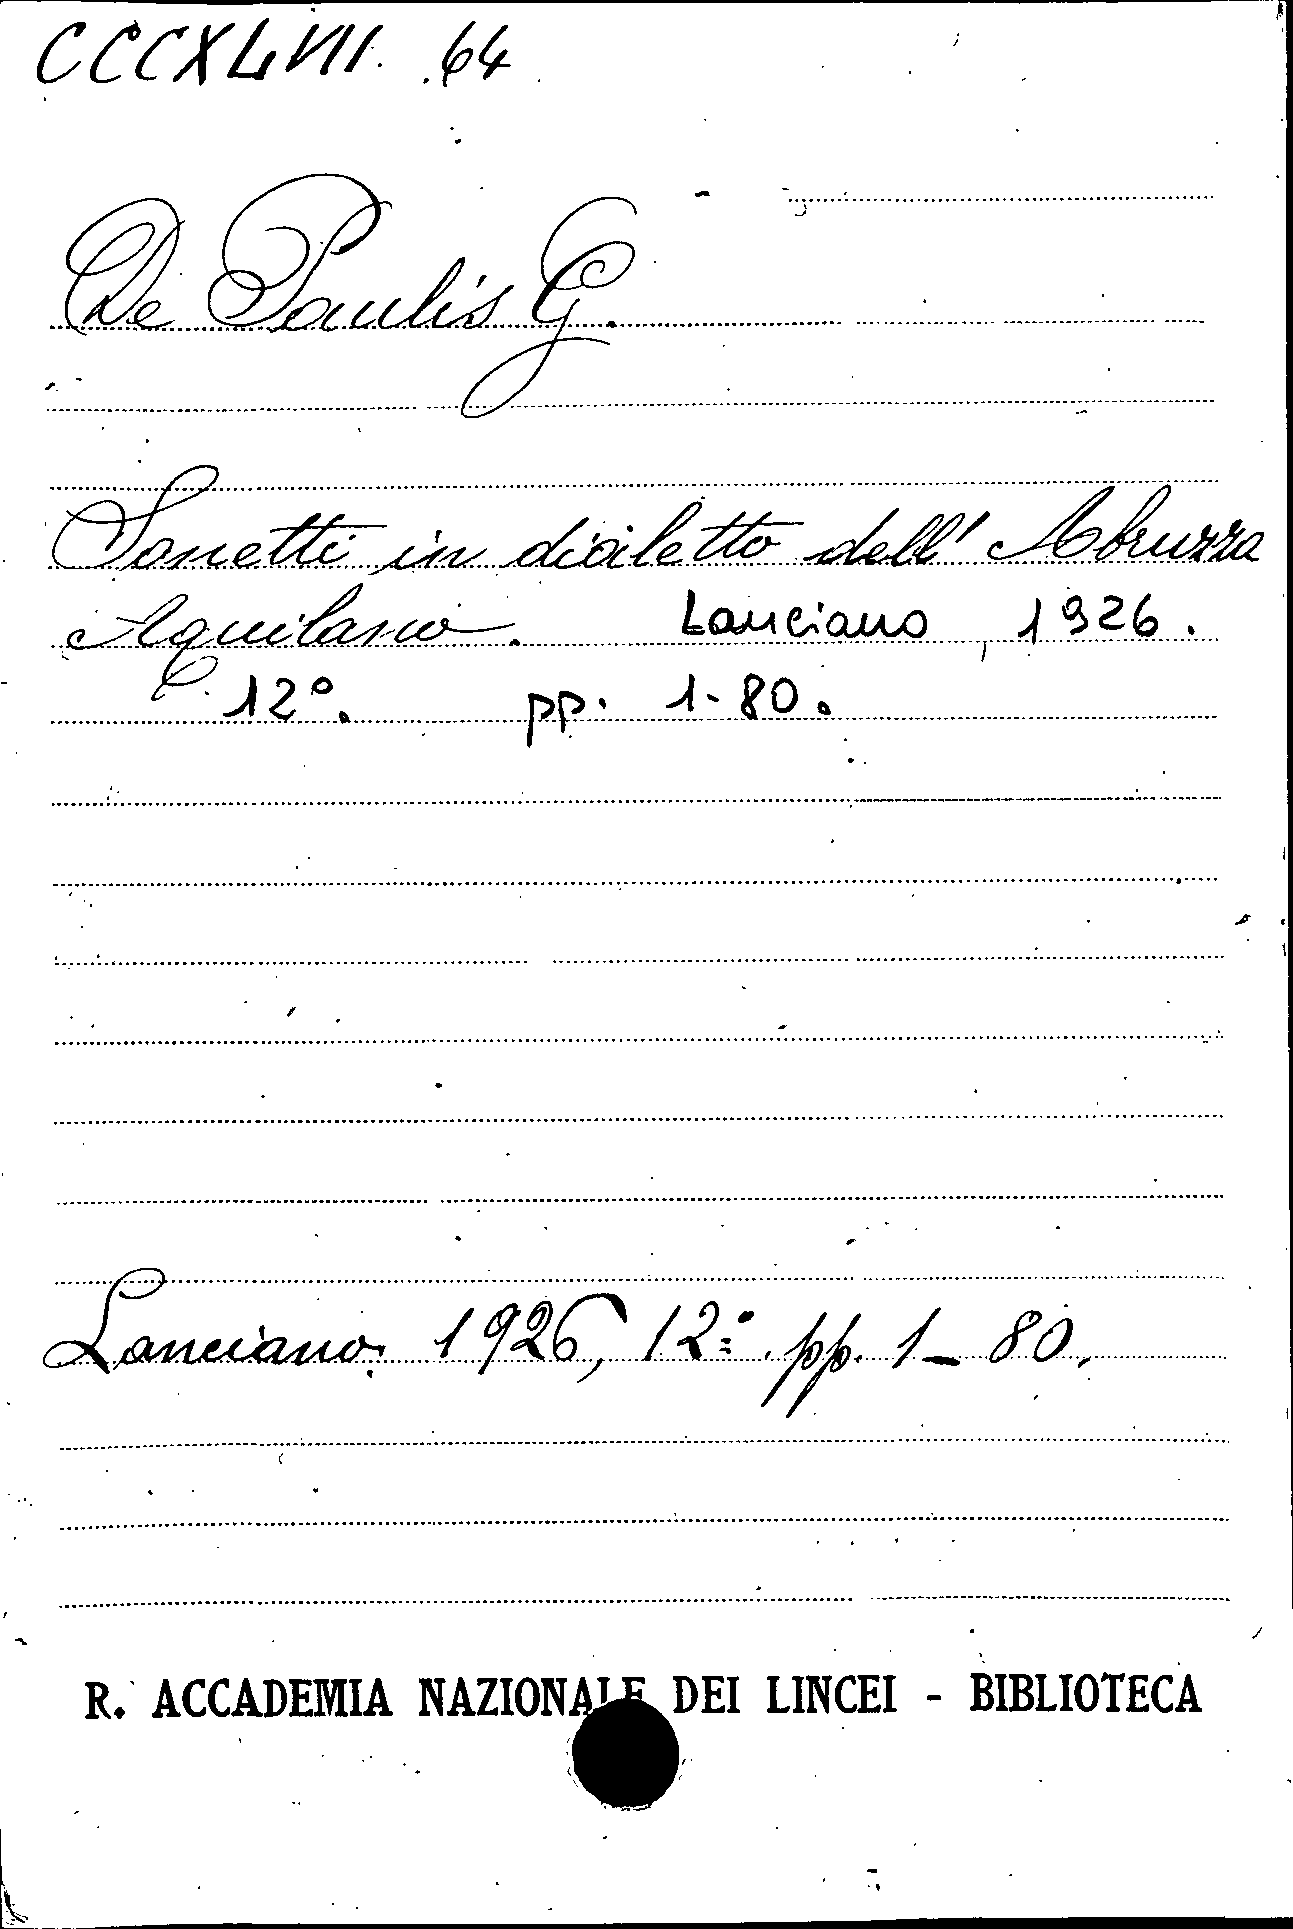 CCCXLVII. 64
De Paulis G.
Sonetti in dialetto dell' Abruzzo
Aquilano. Lanciano, 1926.
12º. pp. 1-80.
Lanciano. 1926, 12º. pp. 1-80.
R. ACCADEMIA NAZIONALE DEI LINCEI - BIBLIOTECA